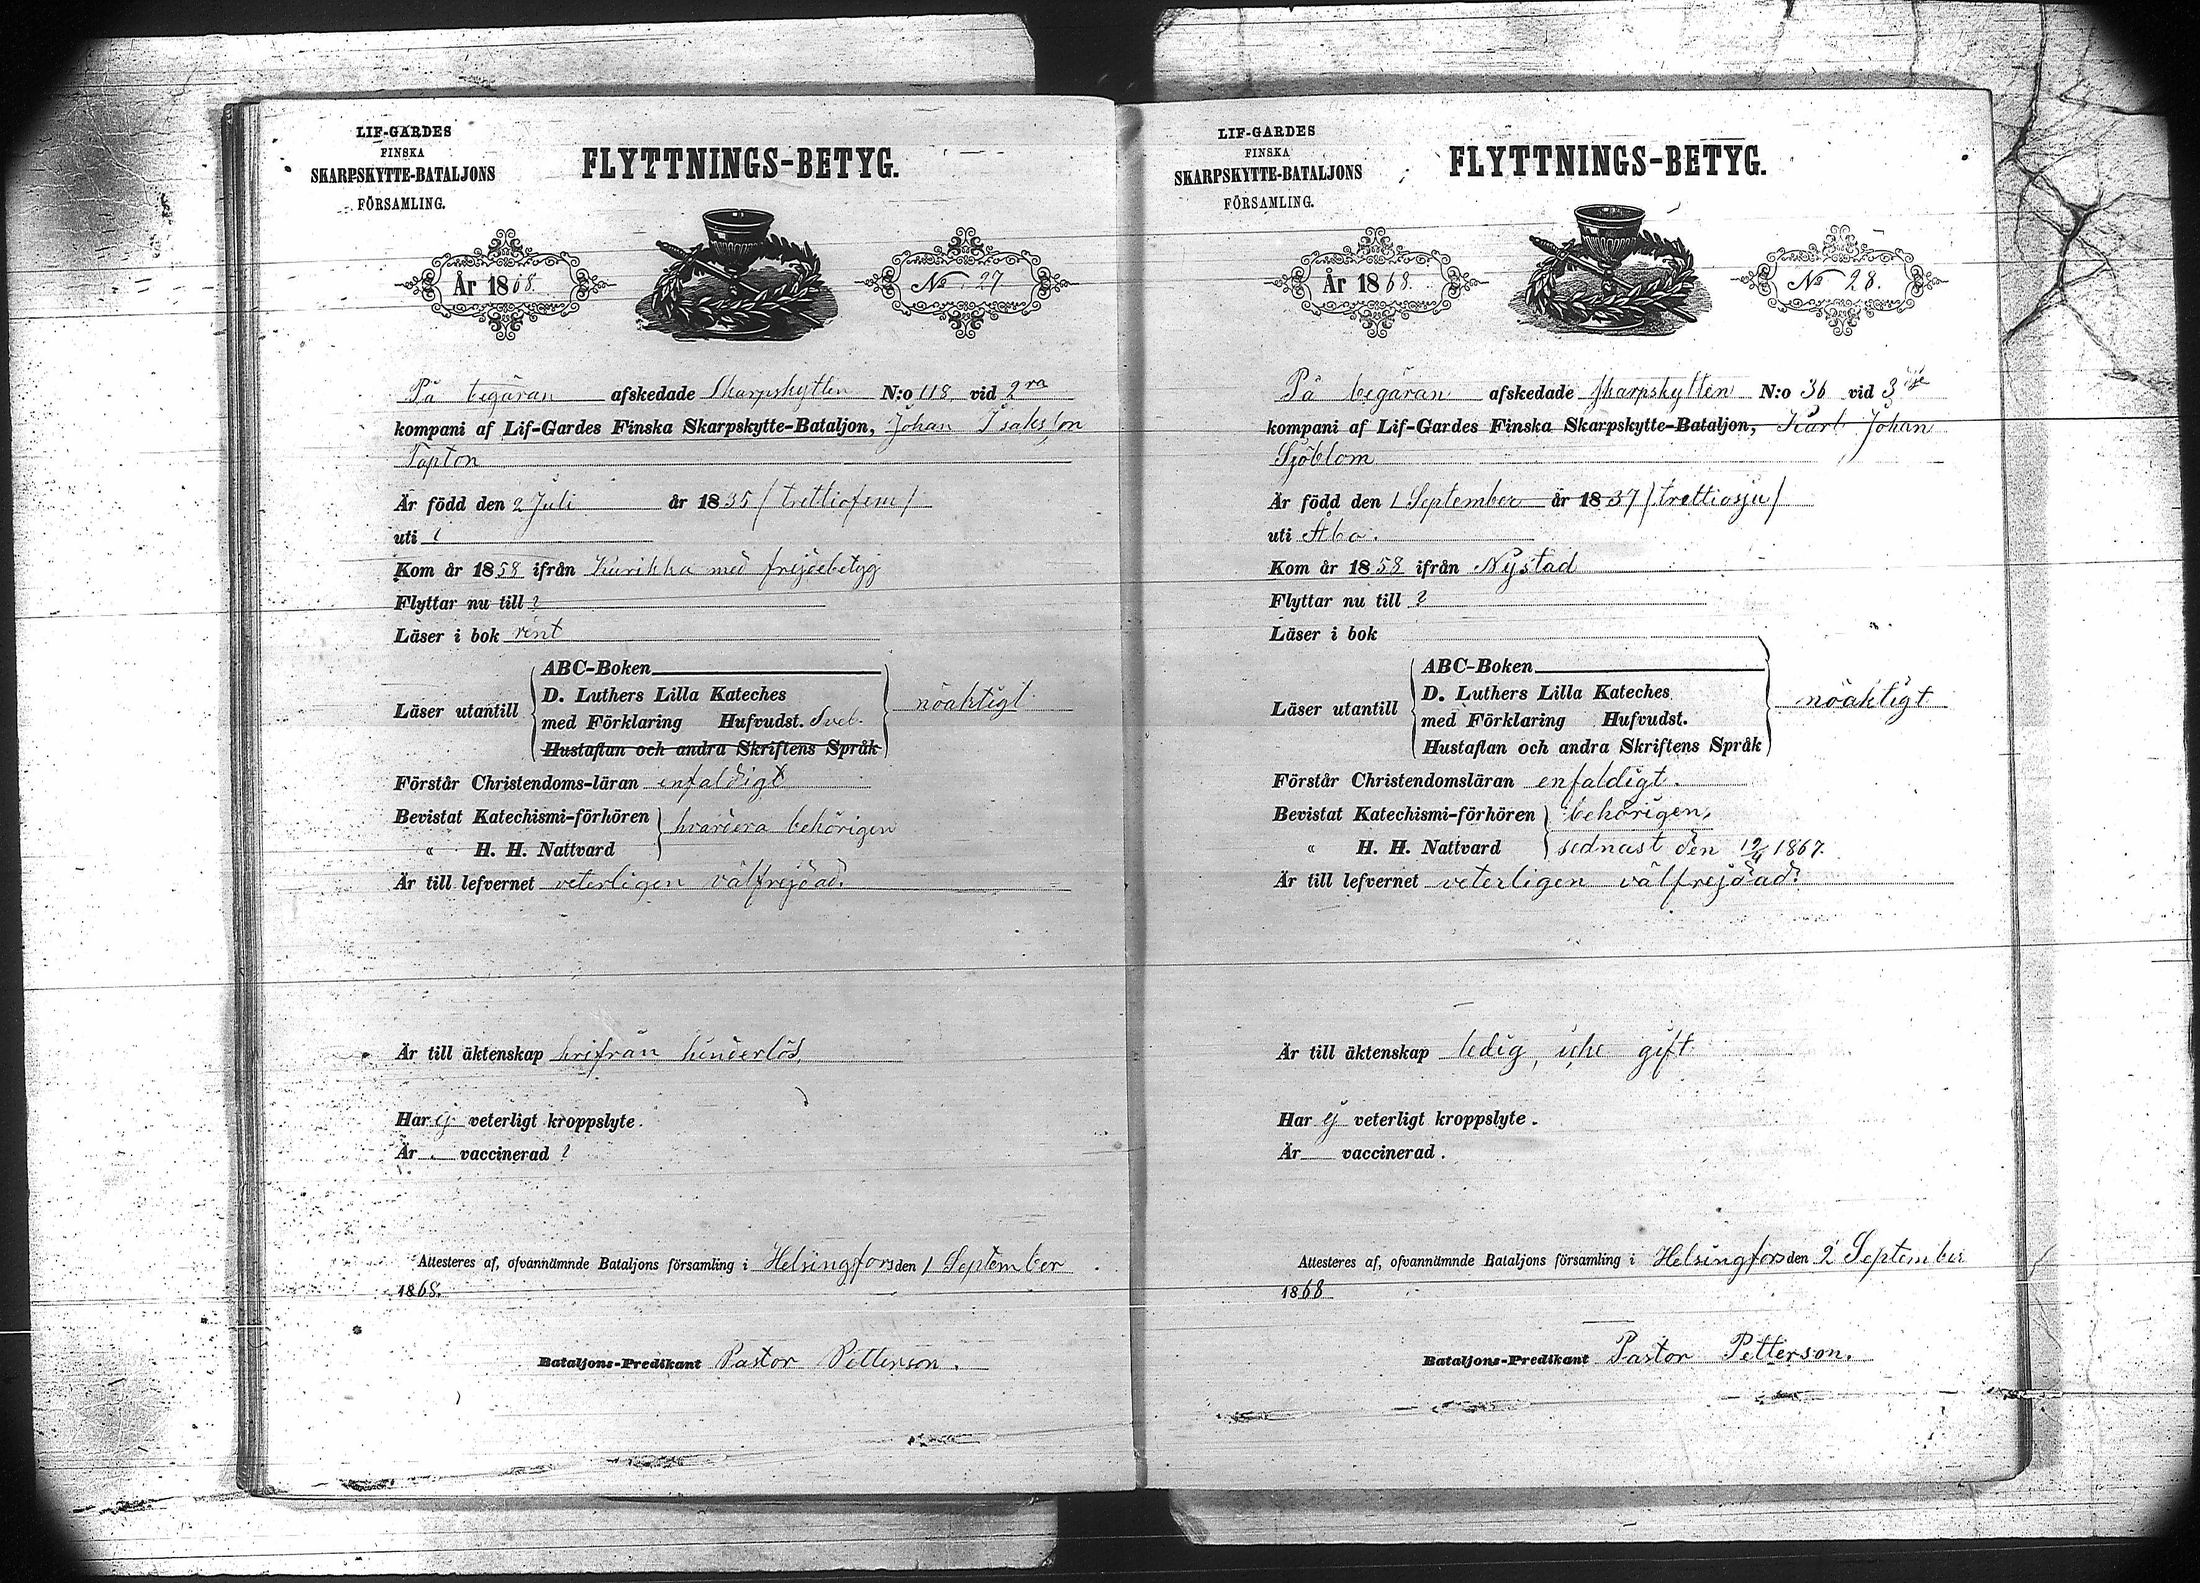 LIF-GARDES
FINSKA
SKARPSKYTTE-BATALJONS
FÖRSAMLING.
FLYTTNINGS-BETYG.
År 1868.
No 27
På begäran afskedade Skarpskytten N:o 118 vid 2ra
kompani af Lif-Gardes Finska Skarpskytte-Bataljon, Johan Isaksson
Tapton
Är född den 2 Juli år 1835 / trettiofem /
uti ?
Kom år 1858 ifrån Kurikka med frejdebetyg
Flyttar nu till ?
Läser i bok rent
ABC-Boken
D. Luthers Lilla Kateches
Läser utantill med Förklaring Hufvudst. Sveb. nöaktigt
Hustaflan och andra Skriftens Språk
Förstår Christendoms-läran enfaldigt
Bevistat Katechismi-förhören hvardera behörigen
" H. H. Nattvard
Är till lefvernet veterligen välfrejdad.
Är till äktenskap hrifrån hinderlös,
Har ej veterligt kroppslyte.
Är vaccinerad ?
Attesteres af, ofvannämnde Bataljons församling i Helsingfors den 1 September
1868.
Bataljons-Predikant Pastor Petterson.
LIF-GARDES
FINSKA
SKARPSKYTTE-BATALJONS
FÖRSAMLING.
FLYTTNINGS-BETYG.
År 1868.
No 28.
På begäran afskedade Skarpskytten N:o 36 vid 3dje
kompani af Lif-Gardes Finska Skarpskytte-Bataljon, Karl Johan
Sjöblom
Är född den 1 September år 1837 / trettiosju /
uti Åbo.
Kom år 1858 ifrån Nystad
Flyttar nu till ?
Läser i bok
ABC-Boken
D. Luthers Lilla Kateches
Läser utantill med Förklaring Hufvudst. nöaktigt
Hustaflan och andra Skriftens Språk
Förstår Christendomsläran enfaldigt.
Bevistat Katechismi-förhören behörigen,
" H. H. Nattvard sednast den 12/4 1867.
Är till lefvernet veterligen välfrejdad.
Är till äktenskap ledig, icke gift
Har ej veterligt kroppslyte.
Är vaccinerad.
Attesteres af, ofvannämnde Bataljons församling i Helsingfors den 2 September
1868
Bataljons-Predikant Pastor Petterson.